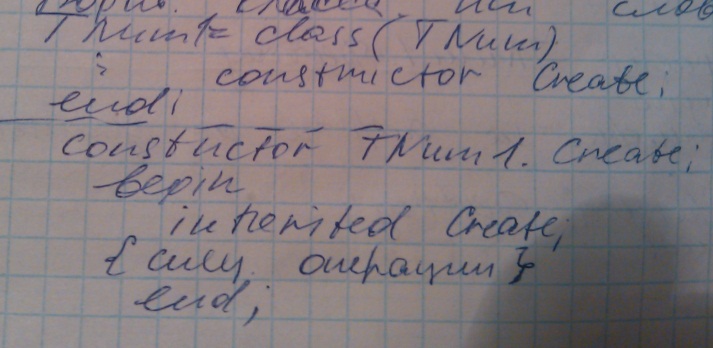 класса
TNum1= class(TNum)
: constructor Create;
end;
constructor TNum1. Create;
begin
inherited Create;
{ спец. операции }
end;